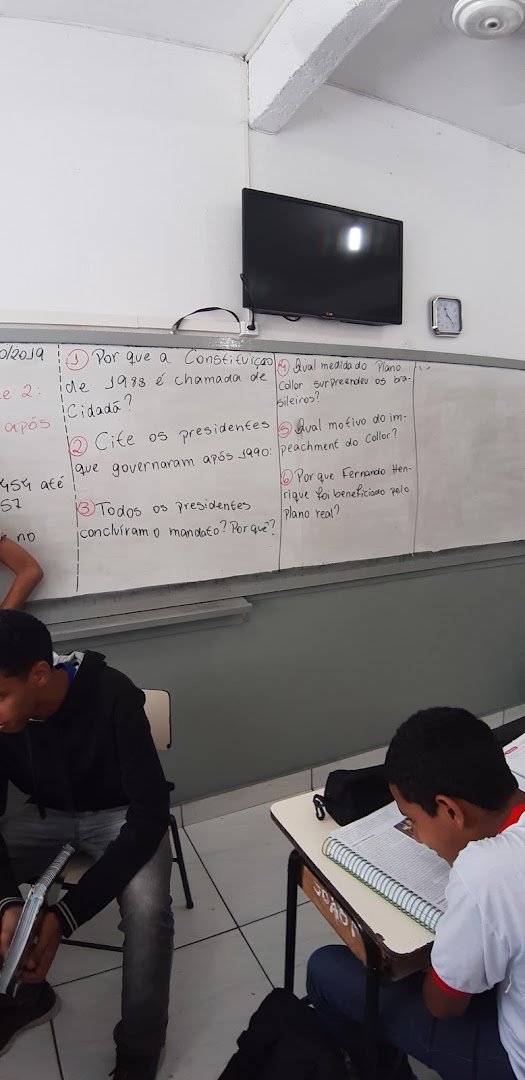 0/2019
e 2:
após
454 até
57
no
① Por que a Constituição
de 1988 é chamada de
Cidadã?
② Cite os presidentes
que governaram após 1990:
③ Todos os presidentes
concluíram o mandato? Por quê?
④ Qual medida do Plano
Collor surpreendeu os bra-
sileiros?
⑤ Qual motivo do im-
peachment do Collor?
⑥ Por que Fernando Hen-
rique foi beneficiado pelo
Plano real?